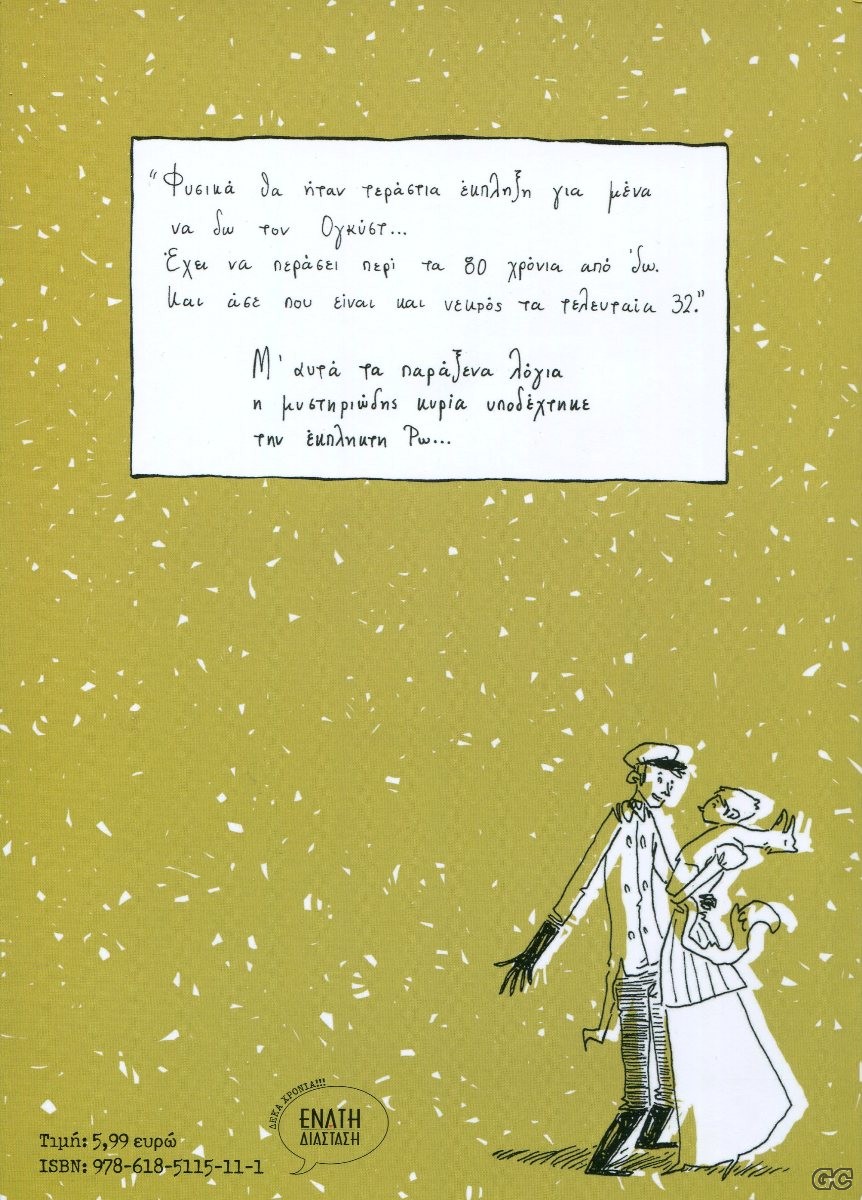 “Φυσικά θα ήταν τεράστια έκπληξη για μένα
να δω τον Ογκύστ...
Έχει να περάσει περί τα 80 χρόνια από 'δω.
Και άσε που είναι και νεκρός τα τελευταία 32.”
Μ' αυτά τα παράξενα λόγια
η μυστηριώδης κυρία υποδέχτηκε
την έκπληκτη Ρω...
ΔΕΚΑ ΧΡΟΝΙΑ!!!
ΕΝΑΤΗ
ΔΙΑΣΤΑΣΗ
Τιμή: 5,99 ευρώ
ISBN: 978-618-5115-11-1
GC